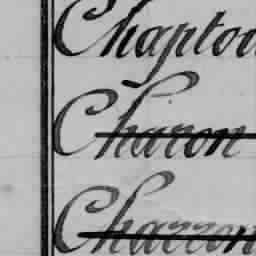 Chaptou
Charon
Charron